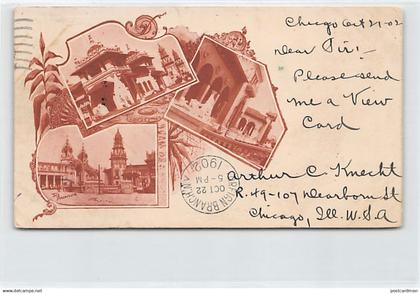 Chicago Oct 21-02
Dear Sir:-
Please send
me a View
Card
Arthur C Knecht
R.49-107 Dearborn St
Chicago, Ill. U.S.A
FOREIGN BRANCH
OCT 22
5-PM
1902